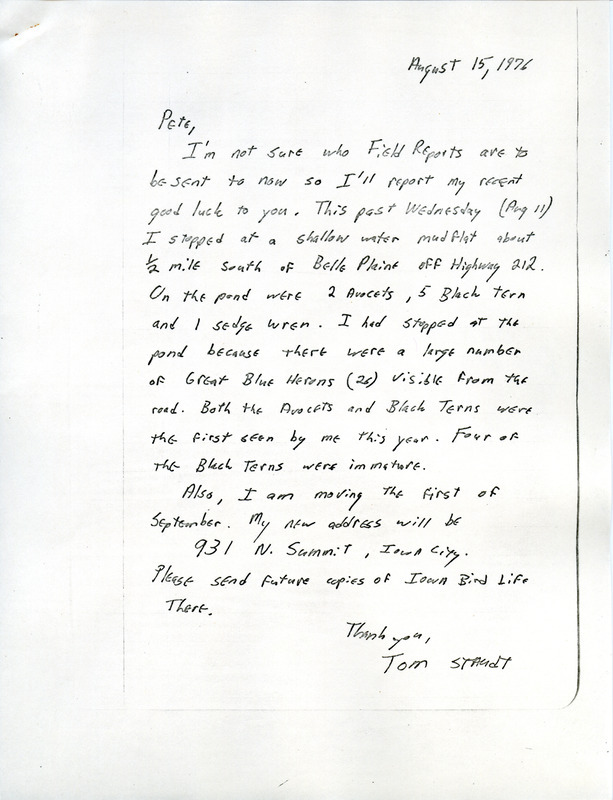 August 15, 1976
Pete,
I'm not sure who Field Reports are to
be sent to now so I'll report my recent
good luck to you. This past Wednesday (Aug 11)
I stopped at a shallow water mudflat about
1/2 mile south of Belle Plaine off Highway 212.
On the pond were 2 Avocets, 5 Black Tern
and 1 sedge wren. I had stopped at the
pond because there were a large number
of Great Blue Herons (26) visible from the
road. Both the Avocets and Black Terns were
the first seen by me this year. Four of
the Black Terns were immature.
Also, I am moving the first of
September. My new address will be
931 N. Summit, Iowa City.
Please send future copies of Iowa Bird Life
There.
Thank you,
Tom Staudt